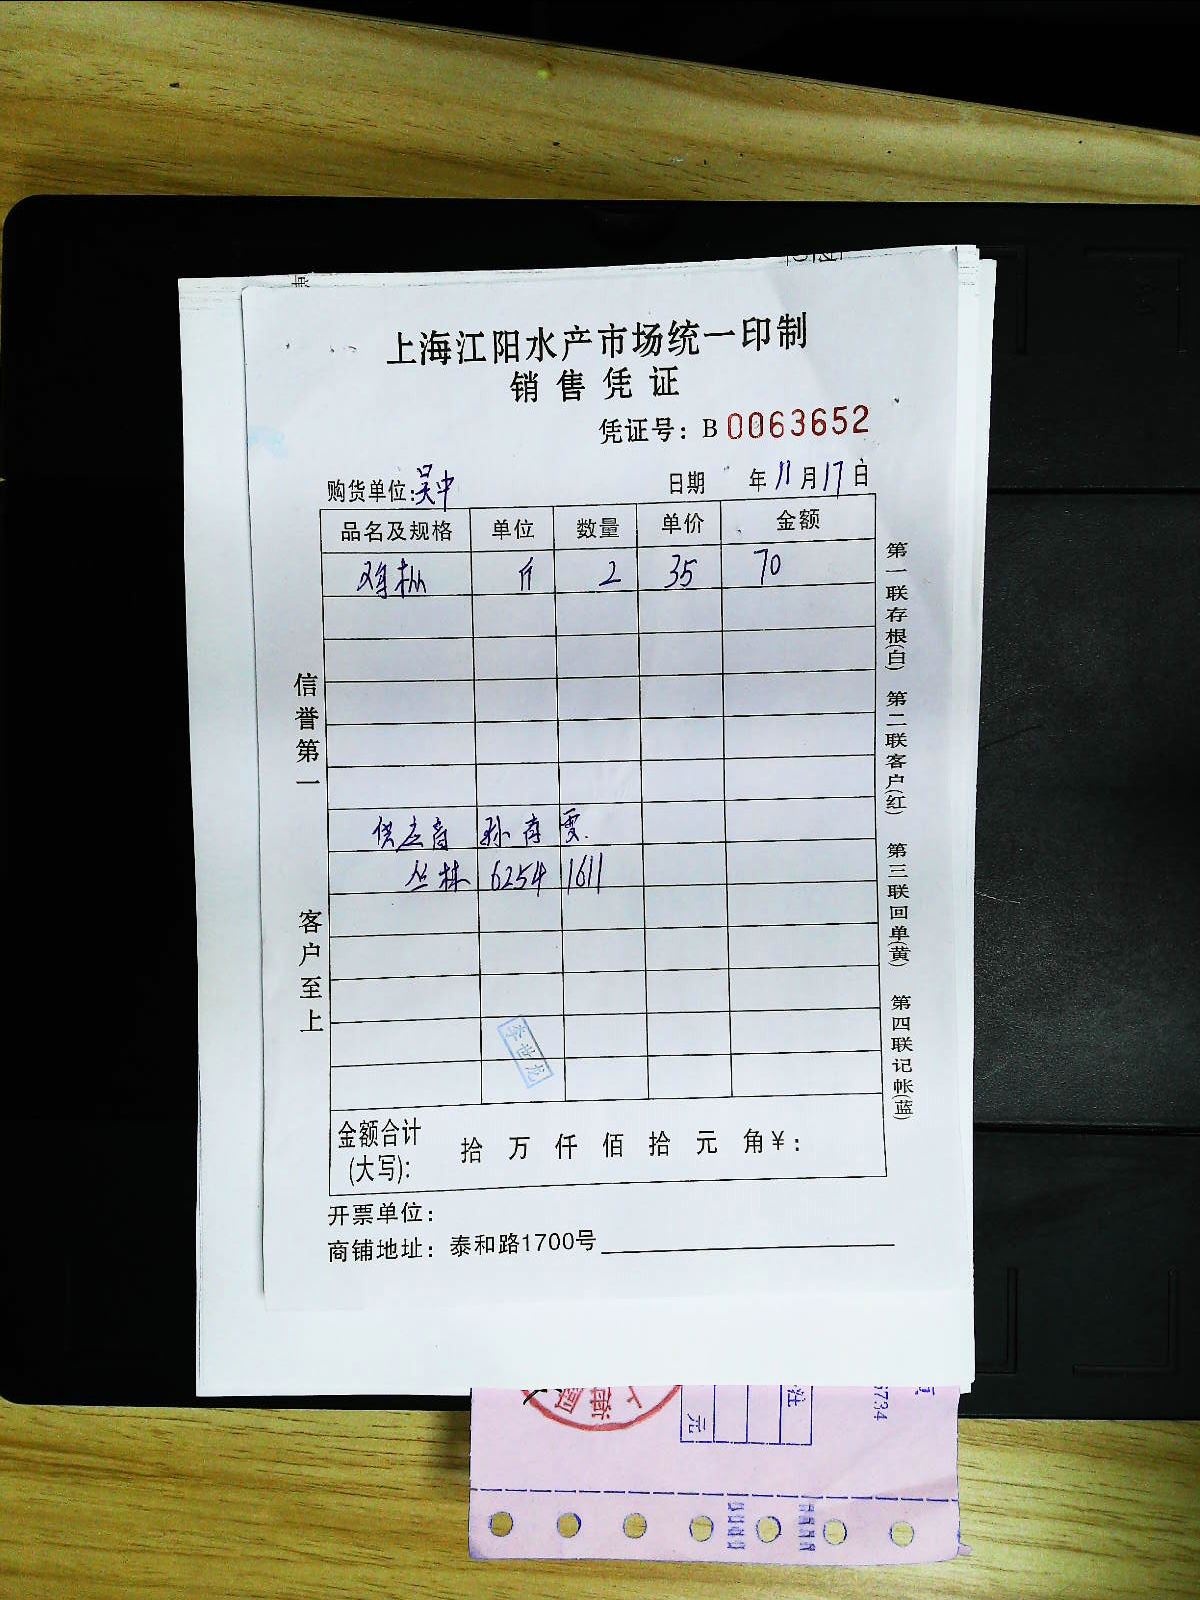 上海江阳水产市场统一印制
销售凭证
凭证号：B 0063652
购货单位：吴中
日期 年 11 月 17 日
品名及规格 单位 数量 单价 金额
鸡枞 斤 2 35 70
供应商 孙育雯
丛林 6254 1611
李世龙
金额合计
(大写)： 拾 万 仟 佰 拾 元 角 ¥：
开票单位：
商铺地址：泰和路1700号
信誉第一
客户至上
第一联存根(白)
第二联客户(红)
第三联回单(黄)
第四联记帐(蓝)
元